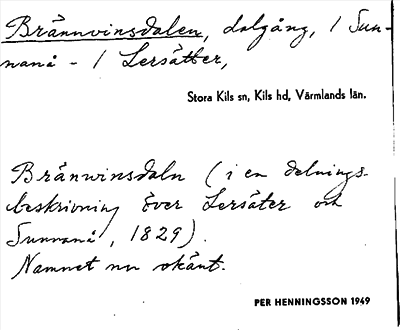 Brännvinsdalen, dalgång, 1 Sun-
nanå - 1 Lersätter,
Stora Kils sn, Kils hd, Värmlands län.
Bränvinsdaln (i en delnings-
beskrivning över Lersäter och
Sunnanå, 1829).
Namnet nu okänt.
PER HENNINGSSON 1949